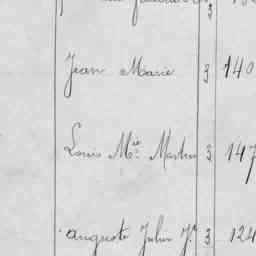 3
Jean Marie 3 140
Louis M.ie Martin 3 147
Auguste Julien J.h 3 124